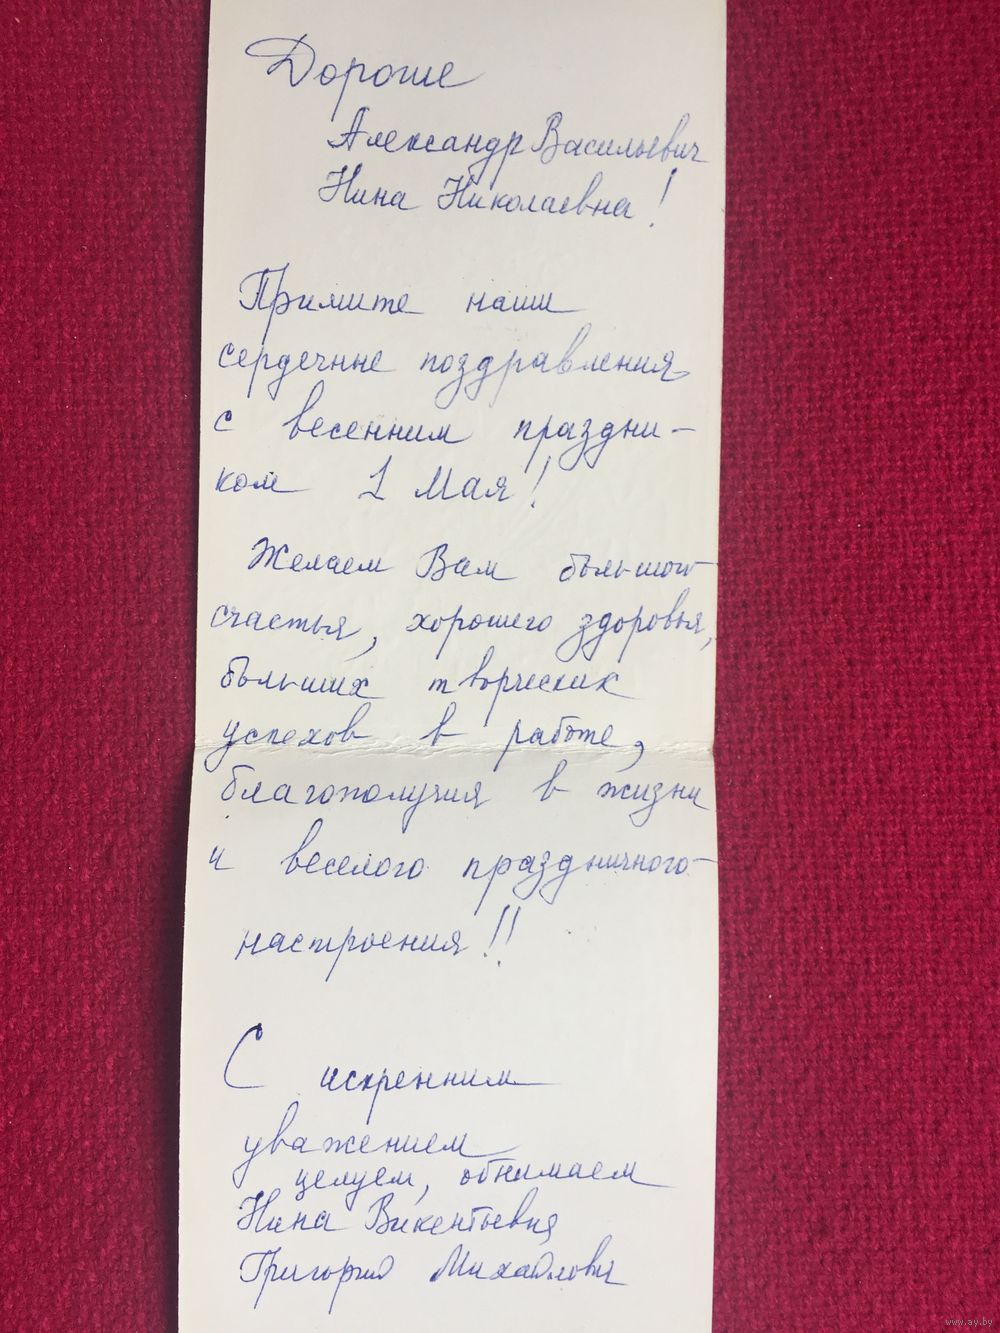 Дорогие
Александр Васильевич
Нина Николаевна!
Примите наши
сердечные поздравления
с весенним праздни-
ком 1 Мая!
Желаем Вам большого
счастья, хорошего здоровья,
больших творческих
успехов в работе,
благополучия в жизни
и веселого праздничного
настроения!!
С искренним
уважением
целуем, обнимаем
Нина Викентьевна
Григорий Михайлович
www.ay.by